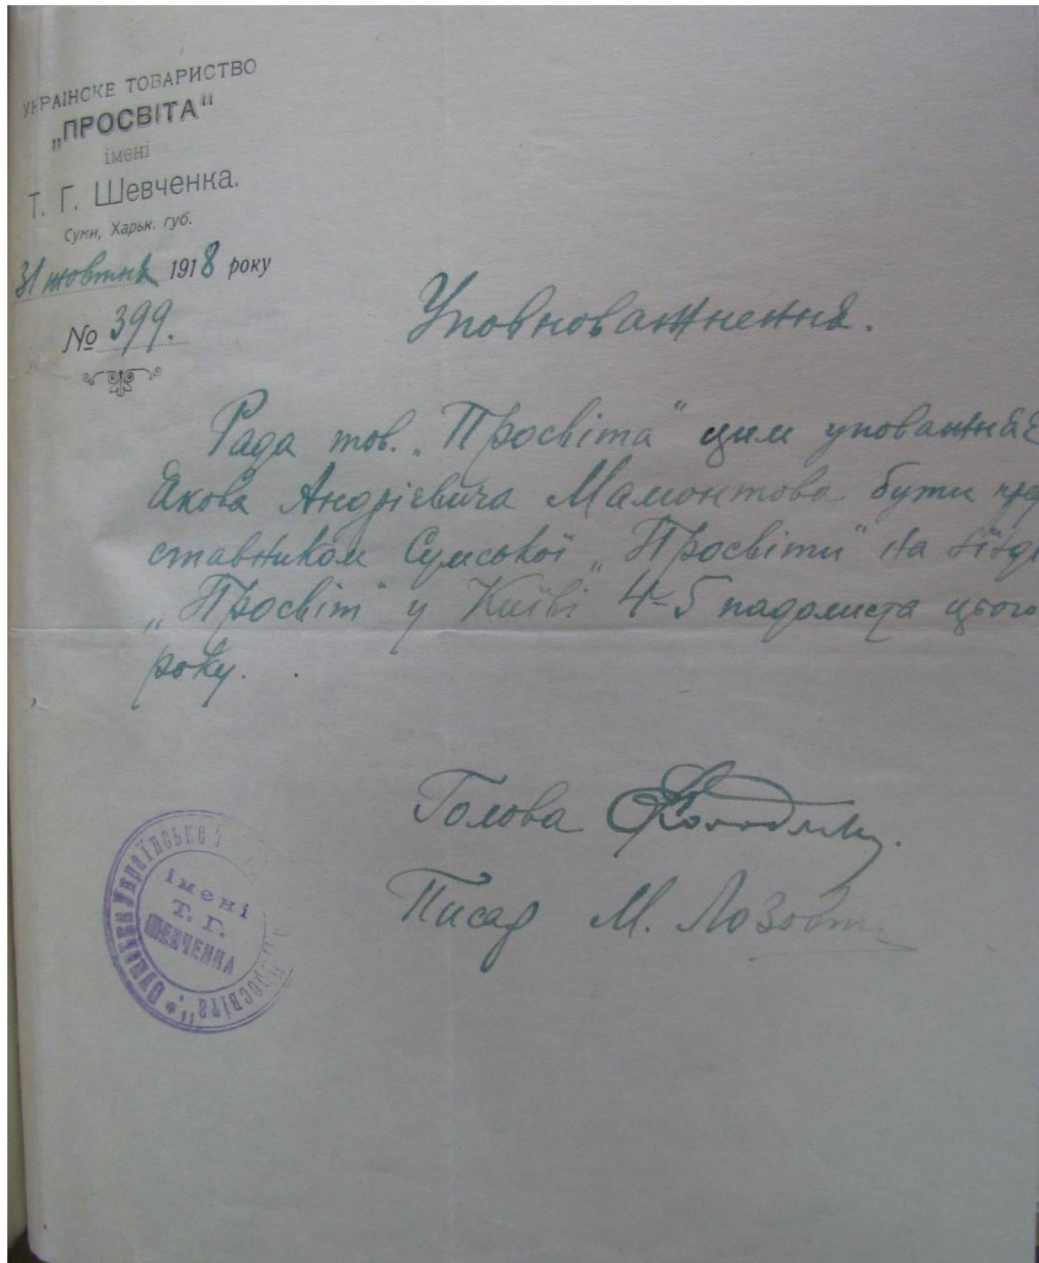 УКРАІНСКЕ ТОВАРИСТВО
„ПРОСВІТА“
імені
Т. Г. Шевченка.
Суми, Харьк. губ.
31 жовтня 1918 року
№ 399.
Уповноважнення.
Рада тов. „Просвіта“ цим уповажняє
Якова Андрієвича Мамонтова бути пред
ставником Сумської „Просвіти“ на
„Просвіт“ у Київі 4-5 падолиста цього
року.
Голова
Писар М.
Українське
„Просвіта“
імені
Т. Г.
ШЕВЧЕНКА